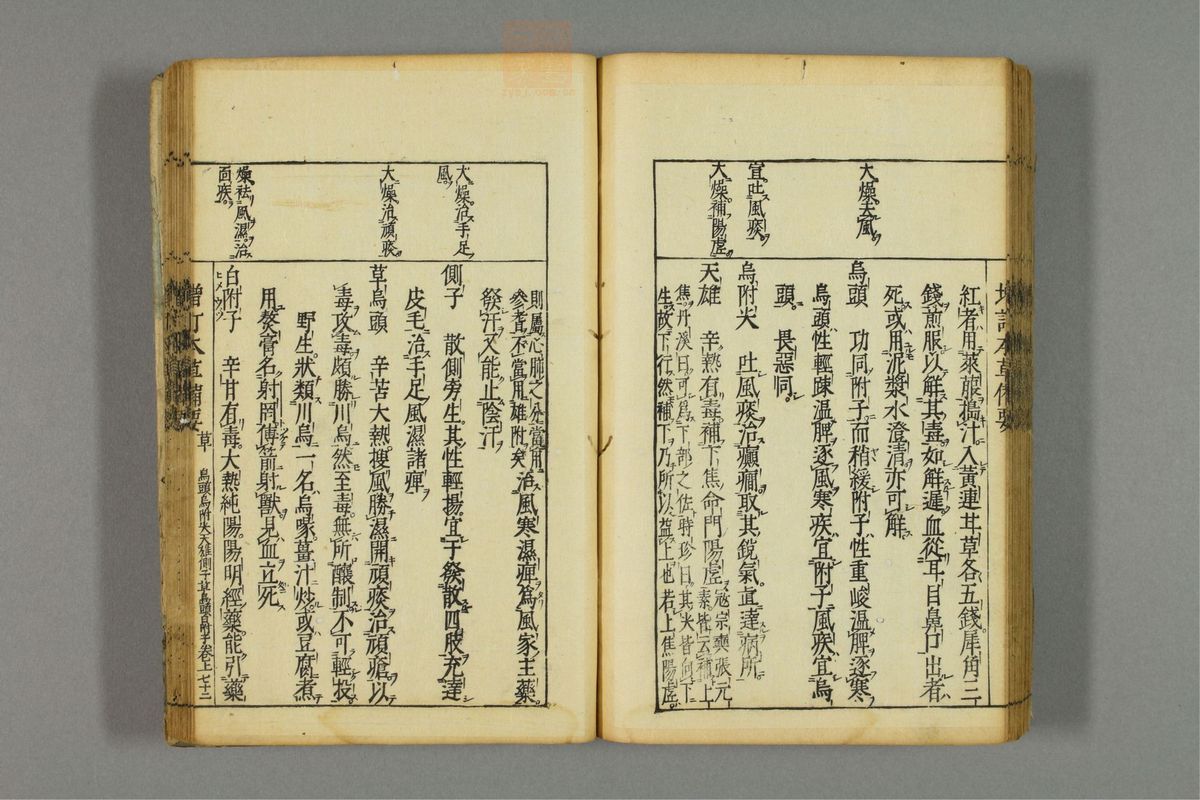 增訂本草備要
紅者用萊菔搗汁入黃連甘草各五錢犀角三
錢煎服以解其毒如解遲血從耳目鼻口出者
死或用泥漿水澄清亦可解
大燥去風
烏頭 功同附子而稍緩附子性重峻溫脾逐寒
烏頭性輕疎溫脾逐風寒疾宜附子風疾宜烏
頭 畏惡同
宣吐風痰
烏附尖 吐風痰治癲癎取其銳氣直達病所
大燥補陽虛
天雄 辛熱有毒補下焦命門陽虛寇宗奭張元素皆云補上
焦丹溪曰可為下部之佐時珍曰其尖皆向下
生故下行然補下乃所以益上也若上焦陽虛
則屬心肺之分當用
參耆不當用雄附矣治風寒濕痺為風家主藥
發汗又能止陰汗
大燥治手足
風
側子 散側旁生其性輕揚宜于發散四肢充達
皮毛治手足風濕諸痺
大燥治頑痰
草烏頭 辛苦大熱搜風勝濕開頑痰治頑瘡以
毒攻毒頗勝川烏然至毒無所釀制不可輕投
野生狀類川烏一名烏喙薑汁炒或豆腐煮
用熬膏名射罔傅箭射獸見血立死
燥祛風濕治
面疾
白附子 辛甘有毒大熱純陽陽明經藥能引藥
增訂本草備要 草 烏頭烏附尖天雄側子草烏頭白附子卷上七十二